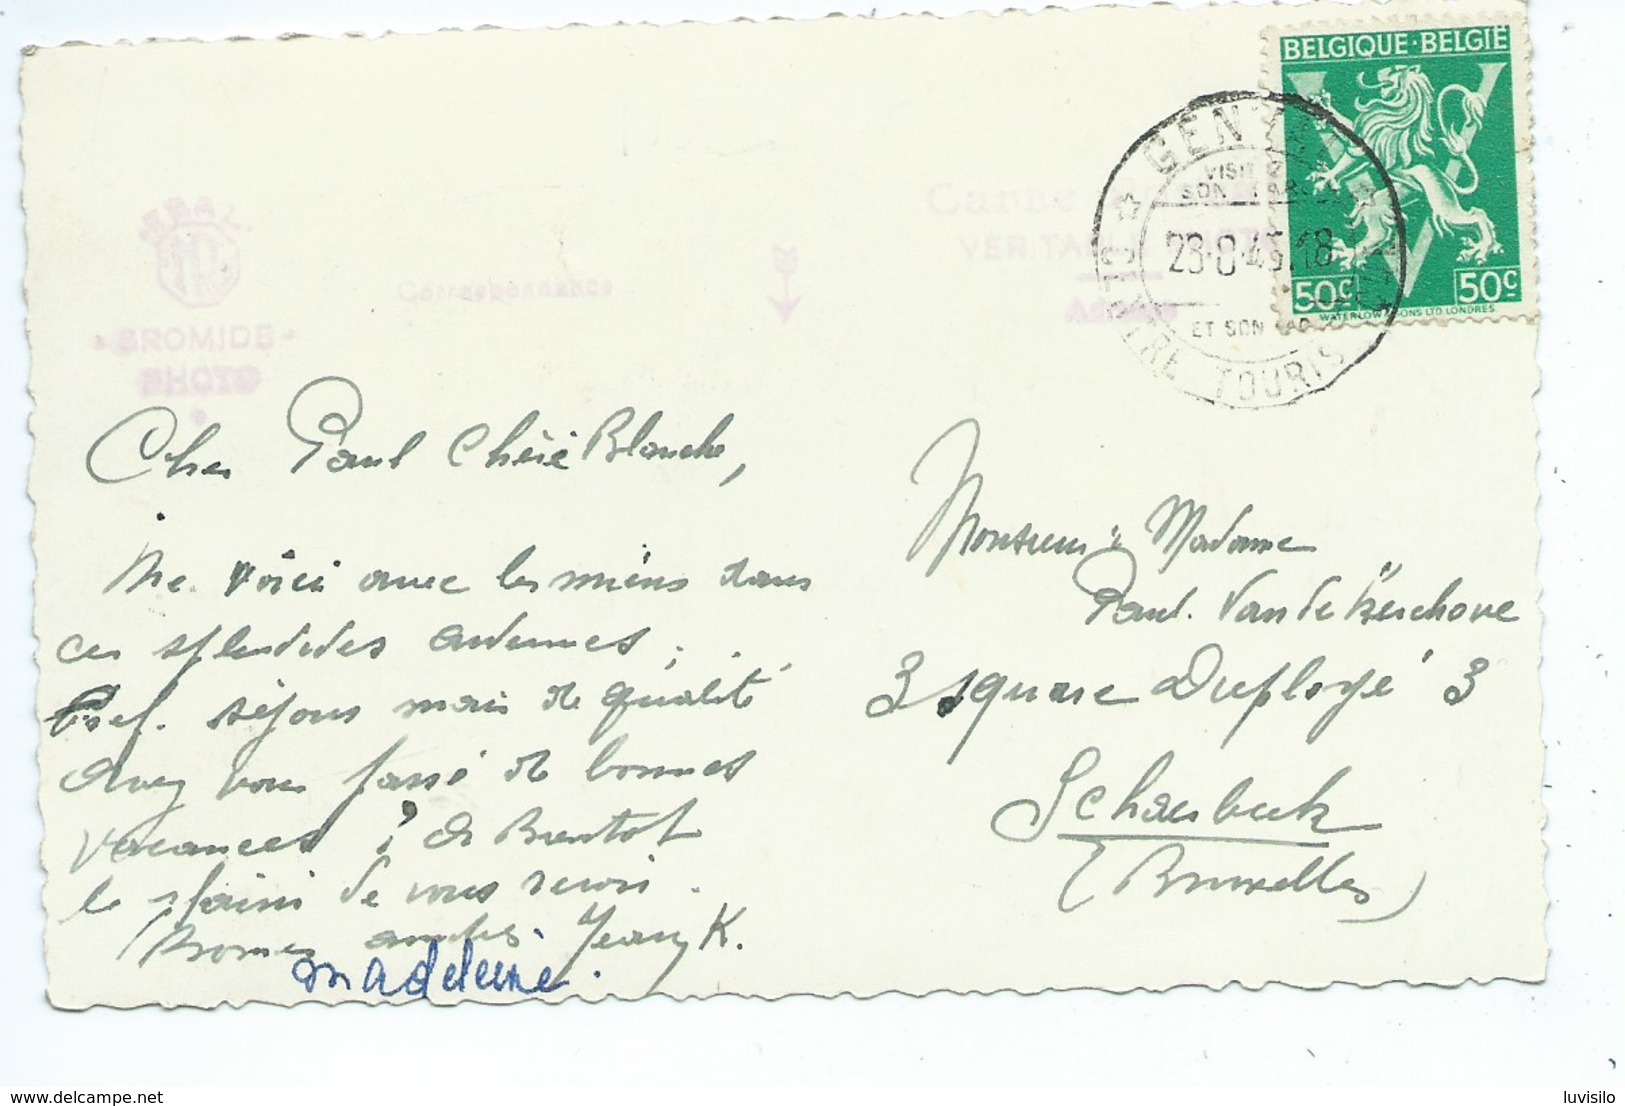 BELGIQUE · BELGIË
50c 50c
WATERLOW & SONS LTD LONDRES.
GENVAL
VISIT
SON
23-8-45.18
ET SON
CENTRE TOURIS
Carte
VERITABLE
Adresse
Correspondance
BROMIDE
PHOTO
Cher Paul Chère Blanche,
Me voici avec les miens dans
ces splendides ardennes.
Bref. séjour mais de qualité
Avez vous passé de bonnes
vacances ? A Bientôt
le plaisir de vous revoir.
Bonnes amitiés Jean K.
Madeleine.
Monsieur & Madame
Paul. Van de Kerchove
3 square Duployé 3
Schaerbeek
(Bruxelles)
luvisilo
delcampe.net